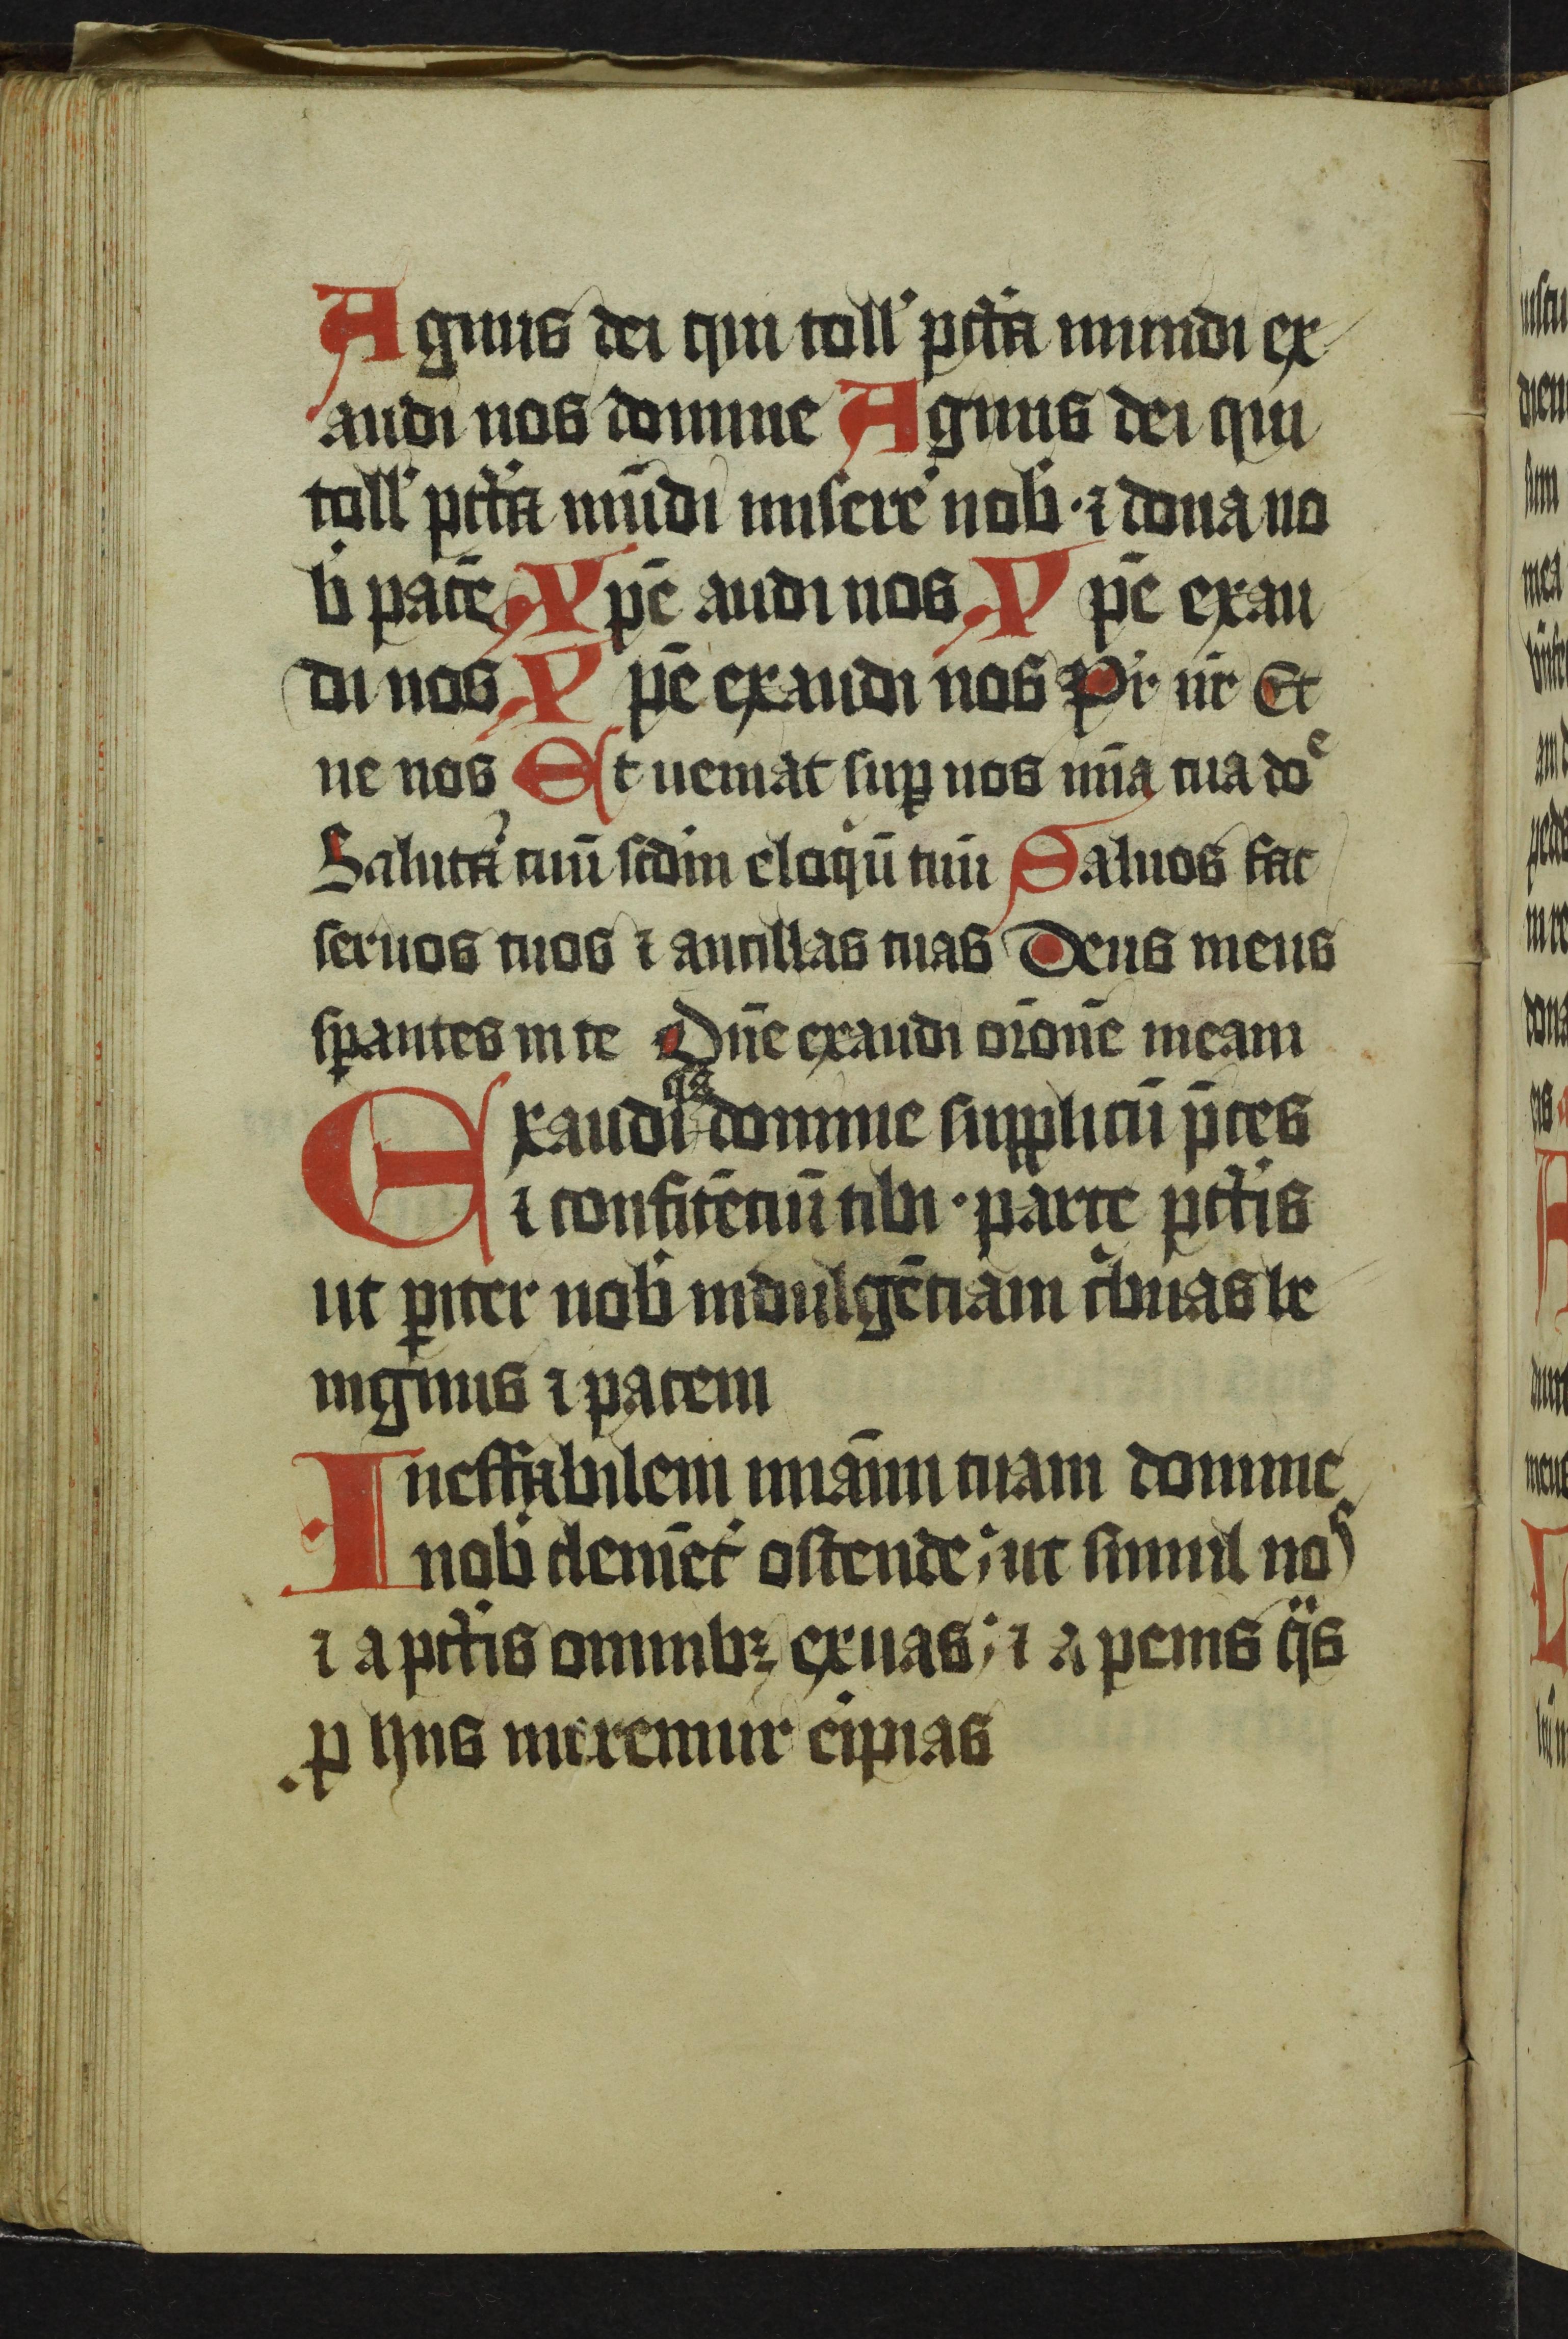 Agnus dei qui toll' pctā mundi ex
audi nos domine Agnus dei qui
toll' pctā mūdi miserē nob · ⁊ dona no
b pacē Xpē audi nos Xpē exau
di nos Xpē exaudi nos Pr nr Et
ne nos Et ueniat suꝑ nos mīa tua doᵉ
Salutā' tuū scdm eloqū tuū Saluos fac
seruos tuos ⁊ ancillas tuas Deus meus
sꝑantes in te Dn̄e exaudi orōnē meam
qs
Exaudi domine supplicū p̄ces
⁊ confitēciū tibi · parce pctīs
ut ꝑiter nob indulgētiam t'buas be
nignus ⁊ pacem
Ineffabilem miām tuam domine
nob clemēt' ostende ; ut simul noˢ
⁊ a pctīs omnibꝫ exuas ; ⁊ a penis q̄s
ꝓ hijs meremur eipias